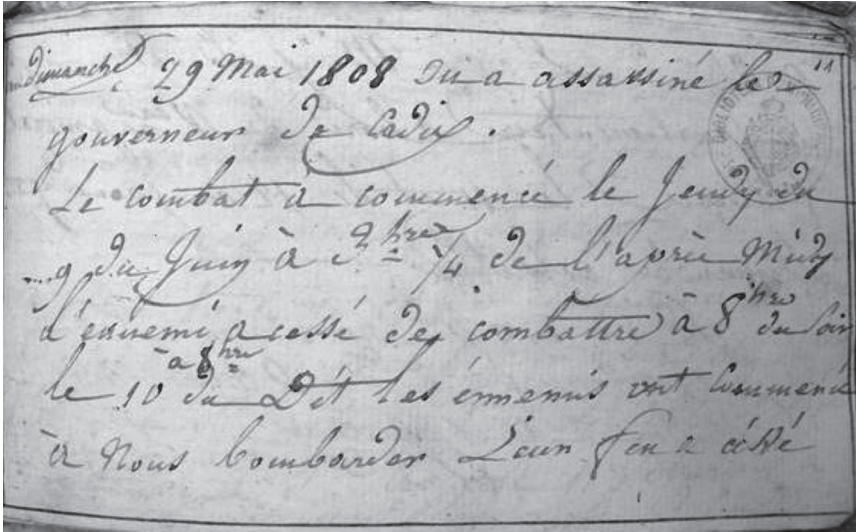 dimanche 29 Mai 1808 on a assassiné le
gouverneur de Cadix.
Le combat à commencé le Jeudy du
9 du Juin à 3 hres 1/4 de l'aprèe Midy
l'énnemi a cessé de combattre à 8 hres du soir
le 10 du Dit à 8 hres les énnemis ont commencé
à nous bombarder Leur feu a céssé
11